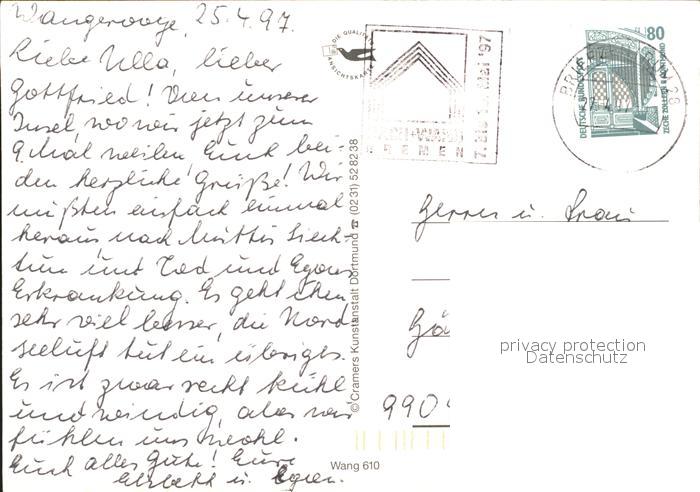 Wangerooge, 25.4.97.
Liebe Ulla, lieber
Gottfried! Von unserer
Insel, wo wir jetzt zum
9. Mal weilen, Euch bei-
den herzliche Grüße! Wir
mußten einfach einmal
heraus nach Muttis Siech-
tum und Tod und Egons
Erkrankung. Es geht ihm
sehr viel besser, die Nord-
seeluft tut ein übriges.
Es ist zwar recht kühl
und windig, aber wir
fühlen uns wohl.
Euch alles Gute! Eure
Elsbeth u. Egon.
DIE QUALITÄTS
ANSICHTSKARTE
© Cramers Kunstanstalt Dortmund ☎ (0231) 528238
BREMEN
7. BIS MAI '97
80
DEUTSCHE BUNDESPOST
ZECHE ZOLLERN II DORTMUND
BRIEFZENTRUM 26
Herrn u. Frau
990
privacy protection
Datenschutz
Wang 610